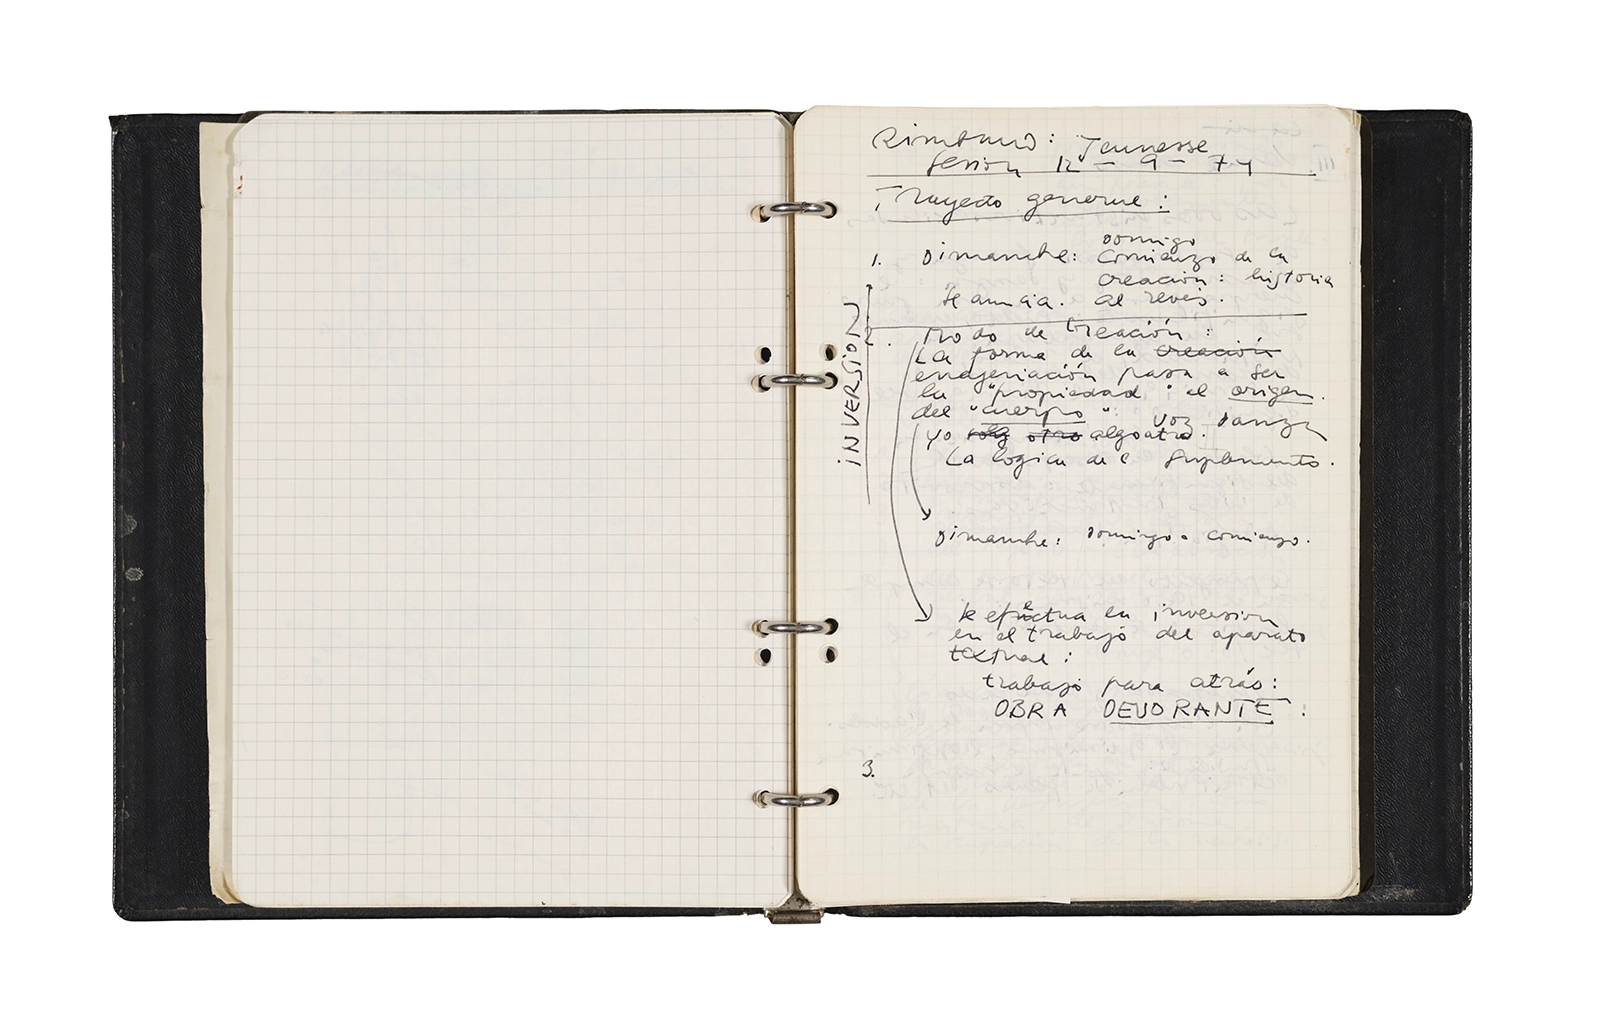 Rimbaud: Jeunesse
Sesión 12-9-74
Trayecto general:
domingo
1. Dimanche: comienzo de la
creación: historia
Se anuncia. al revés.
INVERSION
2. Modo de Creación:
La forma de la creación
enajenación pasa a ser
la "propiedad": el origen.
del "cuerpo": voz danza
yo soy otro algo otro.
La logica del Suplemento.
Dimanche: domingo. comienzo.
se efectua la inversion
en el trabajo del aparato
textual:
trabajo para atrás:
OBRA DEVORANTE.
3.